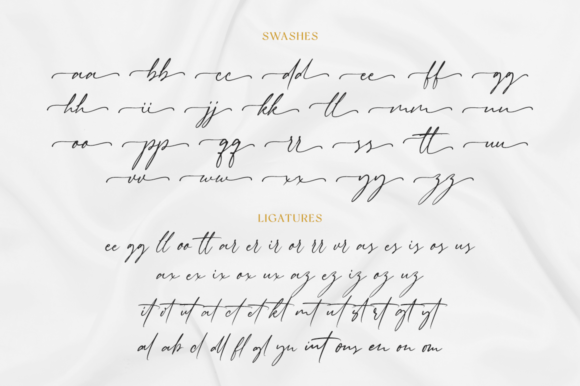 SWASHES
aa bb cc dd ee ff gg
hh ii jj kk ll mm nn
oo pp qq rr ss tt uu
vv ww xx yy zz
LIGATURES
ee gg ll oo tt ar er ir or rr vr as es is os us
ax ex ix ox ux az ez iz oz uz
it ot ut at ct et kt mt ut
al ab cl dll fl gl yn int ous en on om